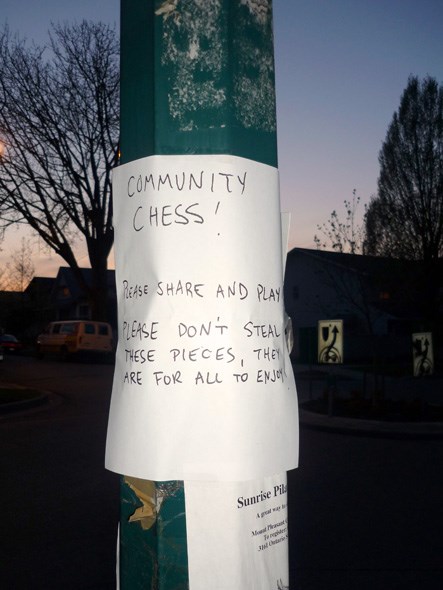 COMMUNITY
CHESS!
PLEASE SHARE AND PLAY
PLEASE DON'T STEAL
THESE PIECES, THEY
ARE FOR ALL TO ENJOY!
Sunrise
A great way
Mount Pleasant
To register
3161 Ontario